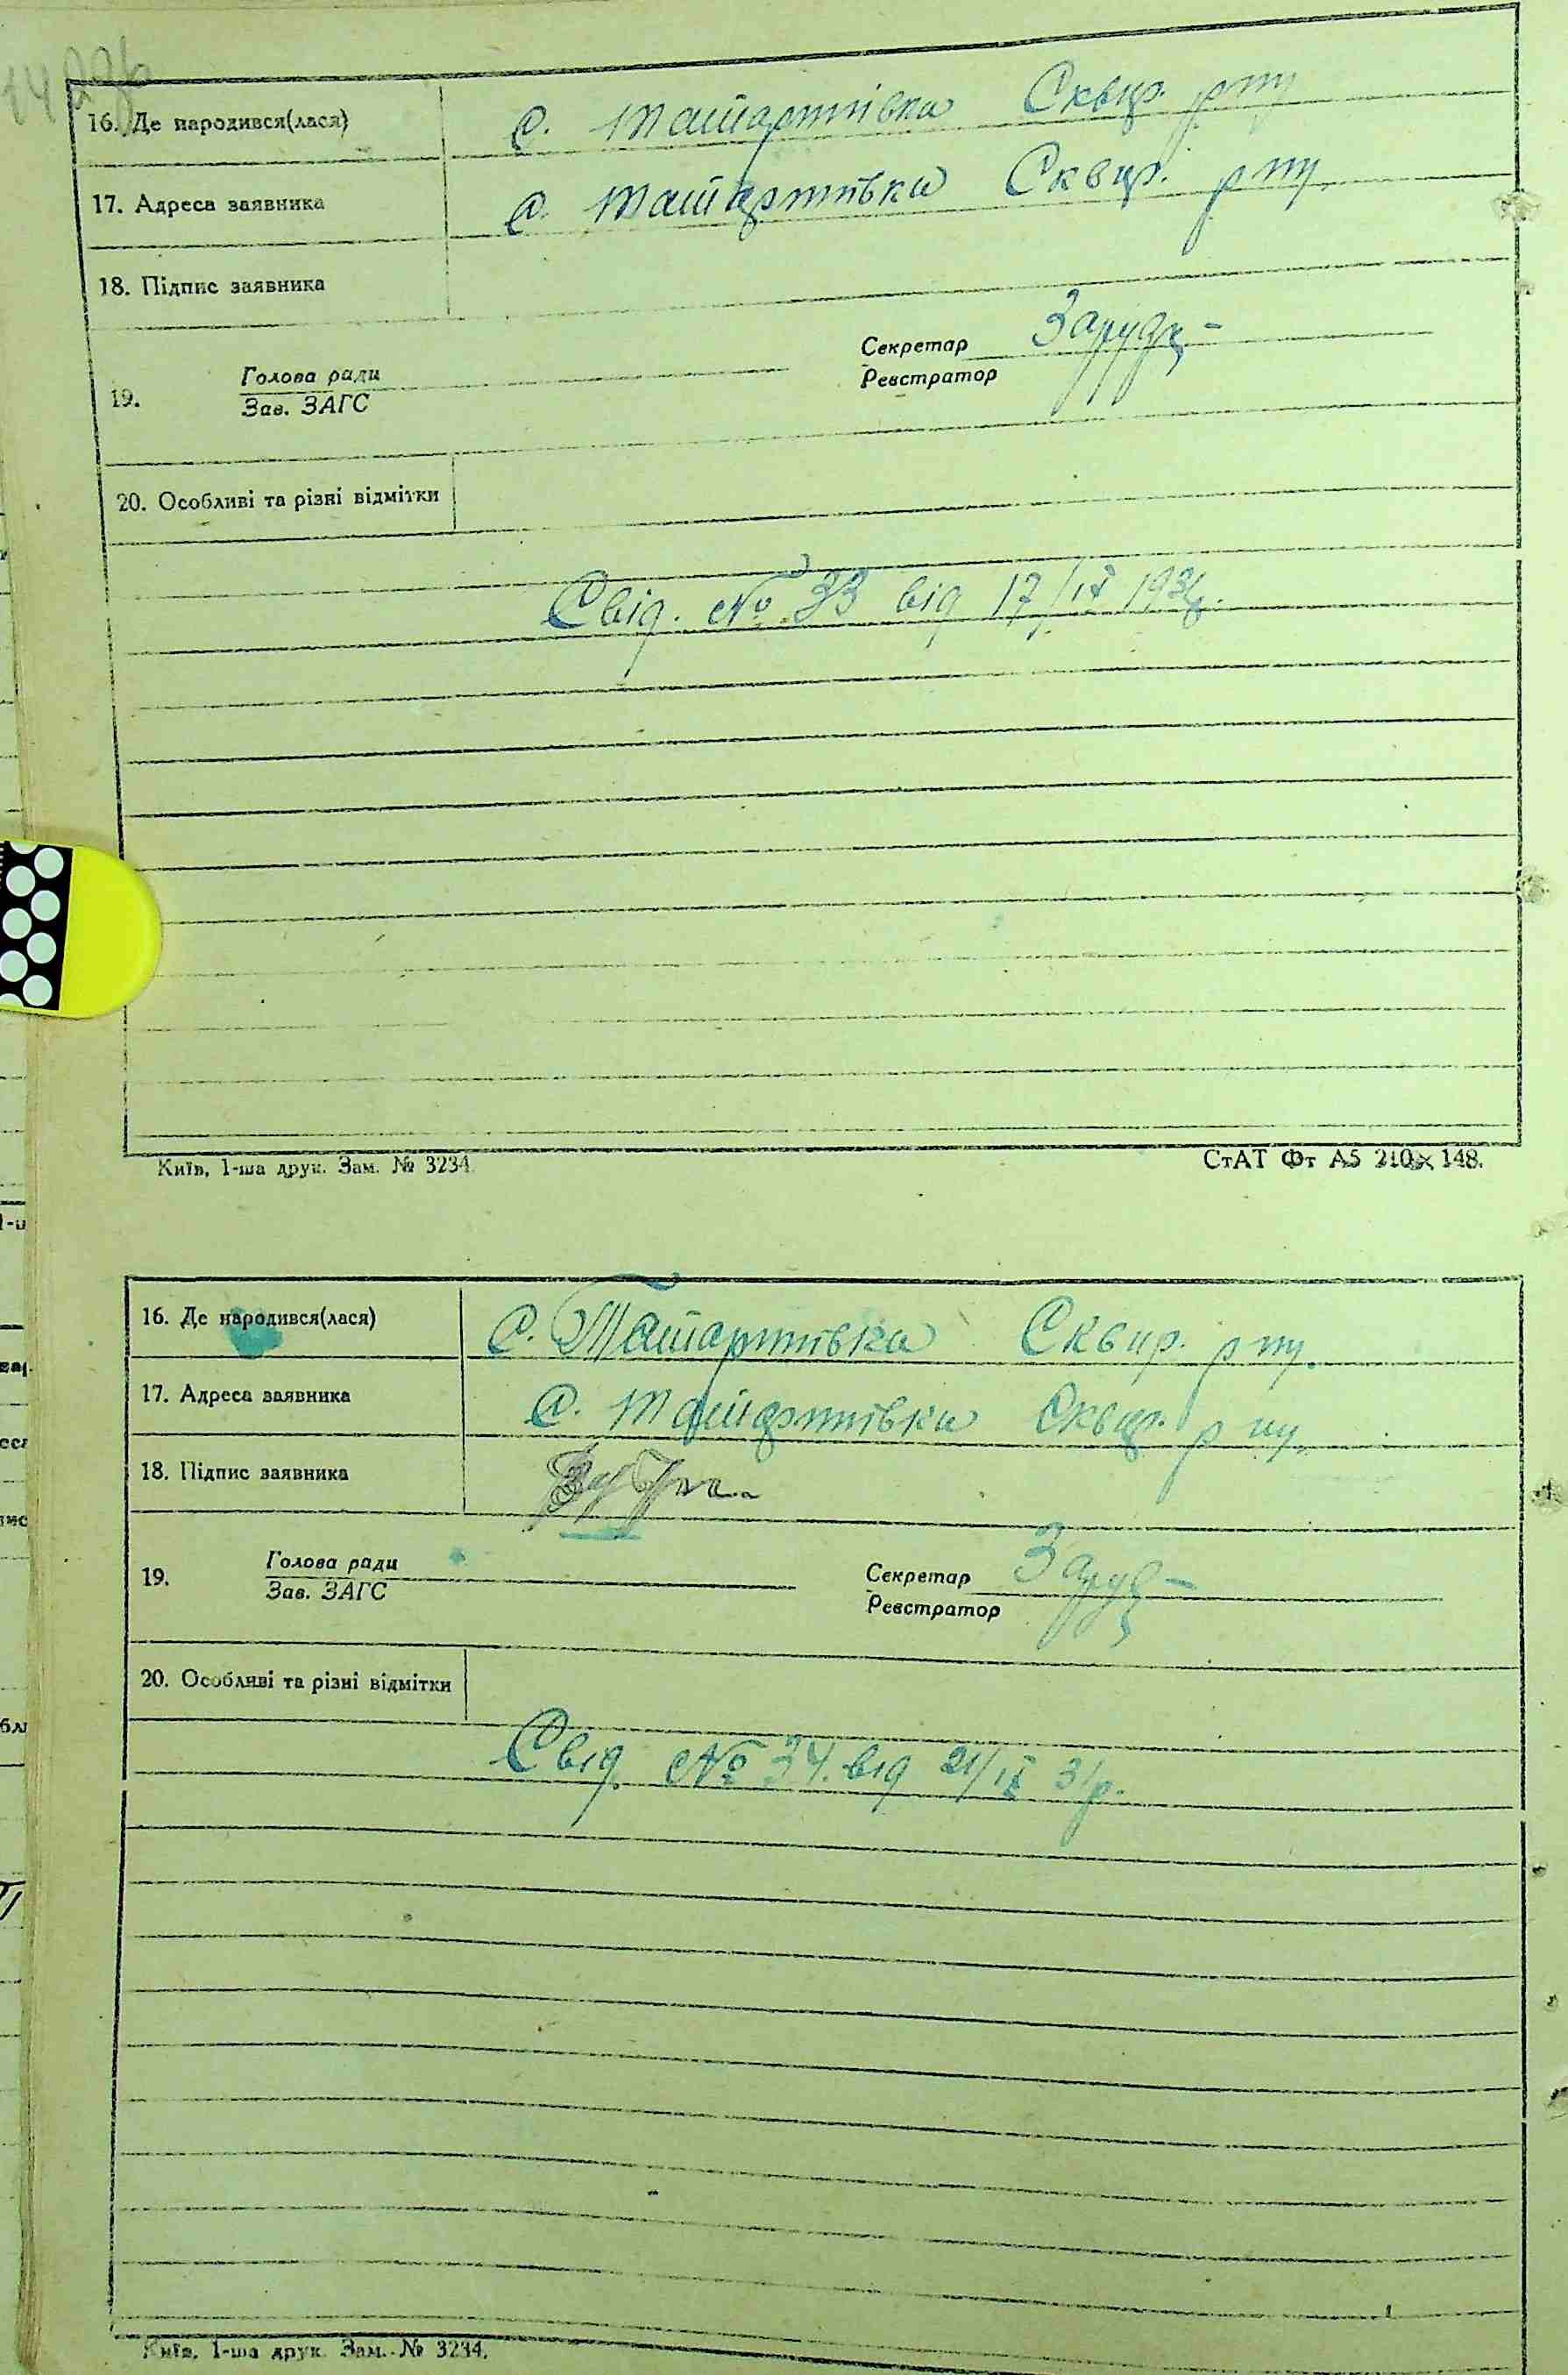 16. Де народився(лася) с. Татаринівка Сквир. р-ну
17. Адреса заявника с. Татаринівка Сквир. р-ну
18. Підпис заявника
Секретар Заруд
Голова ради
Реєстратор
19.
Зав. ЗАГС
20. Особливі та різні відмітки
Свід. № 33 від 17/ІХ 1931р.
Київ, 1-ша друк. Зам. № 3234.
СтАТ Фт А5 210×148.
16. Де народився(лася) с. Татаринівка Сквир. р-ну.
17. Адреса заявника с. Татаринівка Сквир. р-ну.
18. Підпис заявника
Голова ради
Секретар Заруд
19.
Зав. ЗАГС
Реєстратор
20. Особливі та різні відмітки
Свід. № 34. від 21/ІХ 31р.
Київ, 1-ша друк. Зам. № 3234.